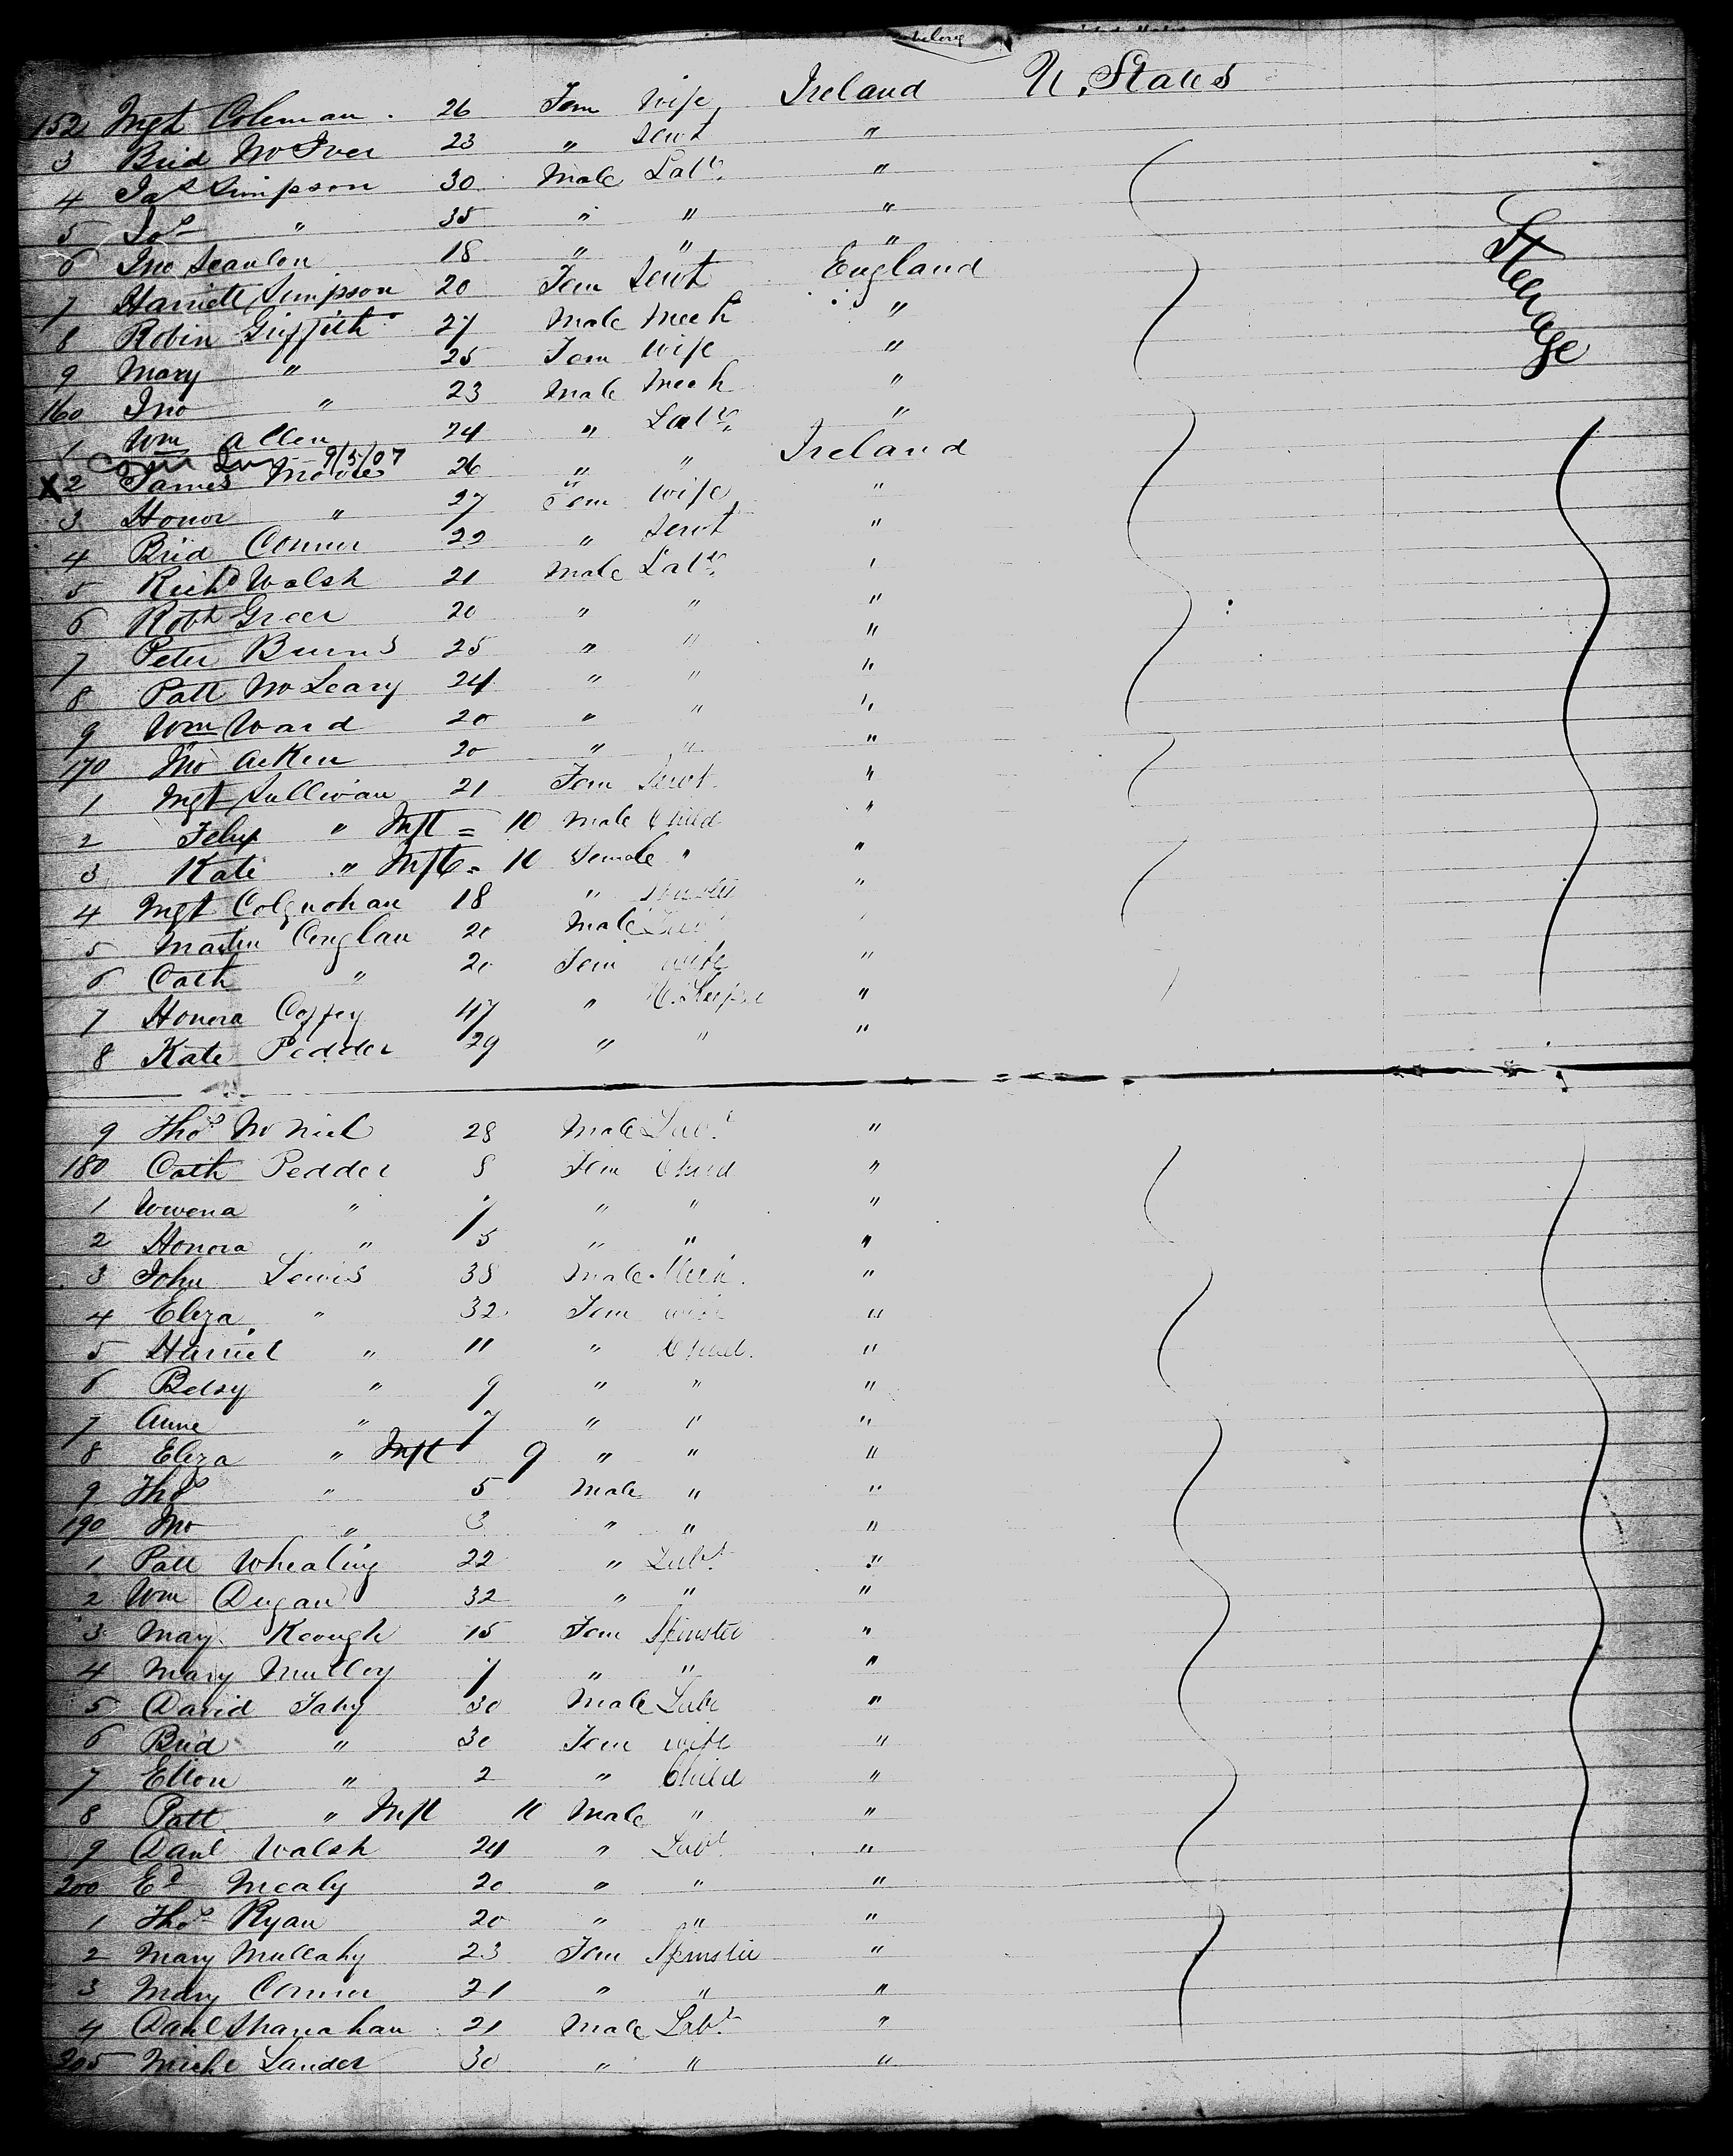 152 Mgt Coleman . 26 Fem Wife Ireland U. States
3 Brid McIver 23 " Servt "
4 Jas Simpson 30 Male Labr "
5 Jos " 35 " " "
6 Jno Scanlon 18 " " "
7 Harriett Simpson 20 Fem Servt England
8 Robin Griffith 27 Male Mech "
9 Mary " 25 Fem Wife "
160 Jno " 23 Male Mech "
1 Wm Allen 24 " Labr "
9/5/07
X2 James Moore 26 " " Ireland
3 Honor " 27 Fem Wife "
4 Brid Connor 22 " Servt "
5 Richd Walsh 21 Male Labr "
6 Robt Greer 20 " " "
7 Peter Burns 25 " " "
8 Patt McLeary 24 " " "
9 Wm Ward 20 " " "
170 Jno Aiken 20 " " "
1 Mgt Sullivan 21 Fem Servt "
2 Felix " Inft = 10 Male Child "
3 Kate " Inft = 10 Female " "
4 Mgt Colquohan 18 " Spinster "
5 Martin Conglan 20 Male Labr "
6 Cath " 20 Fem wife "
7 Honora Coffey 47 " H. Keeper "
8 Kate Pedder 29 " " "
9 Thos McNiel 28 Male Labr "
180 Cath Pedder 8 Fem Child "
1 7 " " "
2 Honora " 5 " " "
3 John Lewis 38 Male Mech "
4 Eliza " 32 Fem wife "
5 Harriet " 11 " Child "
6 Betsy " 9 " " "
7 Anne " 7 " " "
8 Eliza " Inft 9 " " "
9 Thos " 5 Male " "
190 Jno " 3 " " "
1 Patt Whealing 22 " Labr "
2 Wm Dugan 32 " " "
3 Mary Keough 15 Fem Spinster "
4 Mary Mulloy 7 " " "
5 David Fahy 30 Male Labr "
6 Brid " 30 Fem wife "
7 Ellen " 2 " Child "
8 Patt " Inft 10 Male " "
9 Danl Walsh 24 " Labr "
200 Ed Mealy 20 " " "
1 Thos Ryan 20 " " "
2 Mary Mullahy 23 Fem Spinster "
3 Mary Connor 21 " " "
4 Danl Shanahan 21 Male Labr "
205 Michl Lander 30 " " "
Steerage